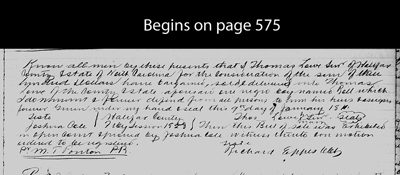 Begins on page 575
Know all men by these presents that I Thomas Low Senr of Halifax
County & State of North Carolina for the consideration of the sum of three
hundred dollars have bargained, sold & delivered unto Thomas
of the County & State aforesaid one negro boy named which
I do warrant & forever defend from all persons to him his heirs assigns
forever Given under my hand & seal this 9th day of January 18
State Halifax County Thos Low Senr Seal
Joshua Cole Feby Session Then this Bill of Sale was Exhibited
in open Court & proved by Joshua Cole witness thereto on motion
ordered to be registered Teste
M. T. Ponton P.R. Richard Eppes Clk